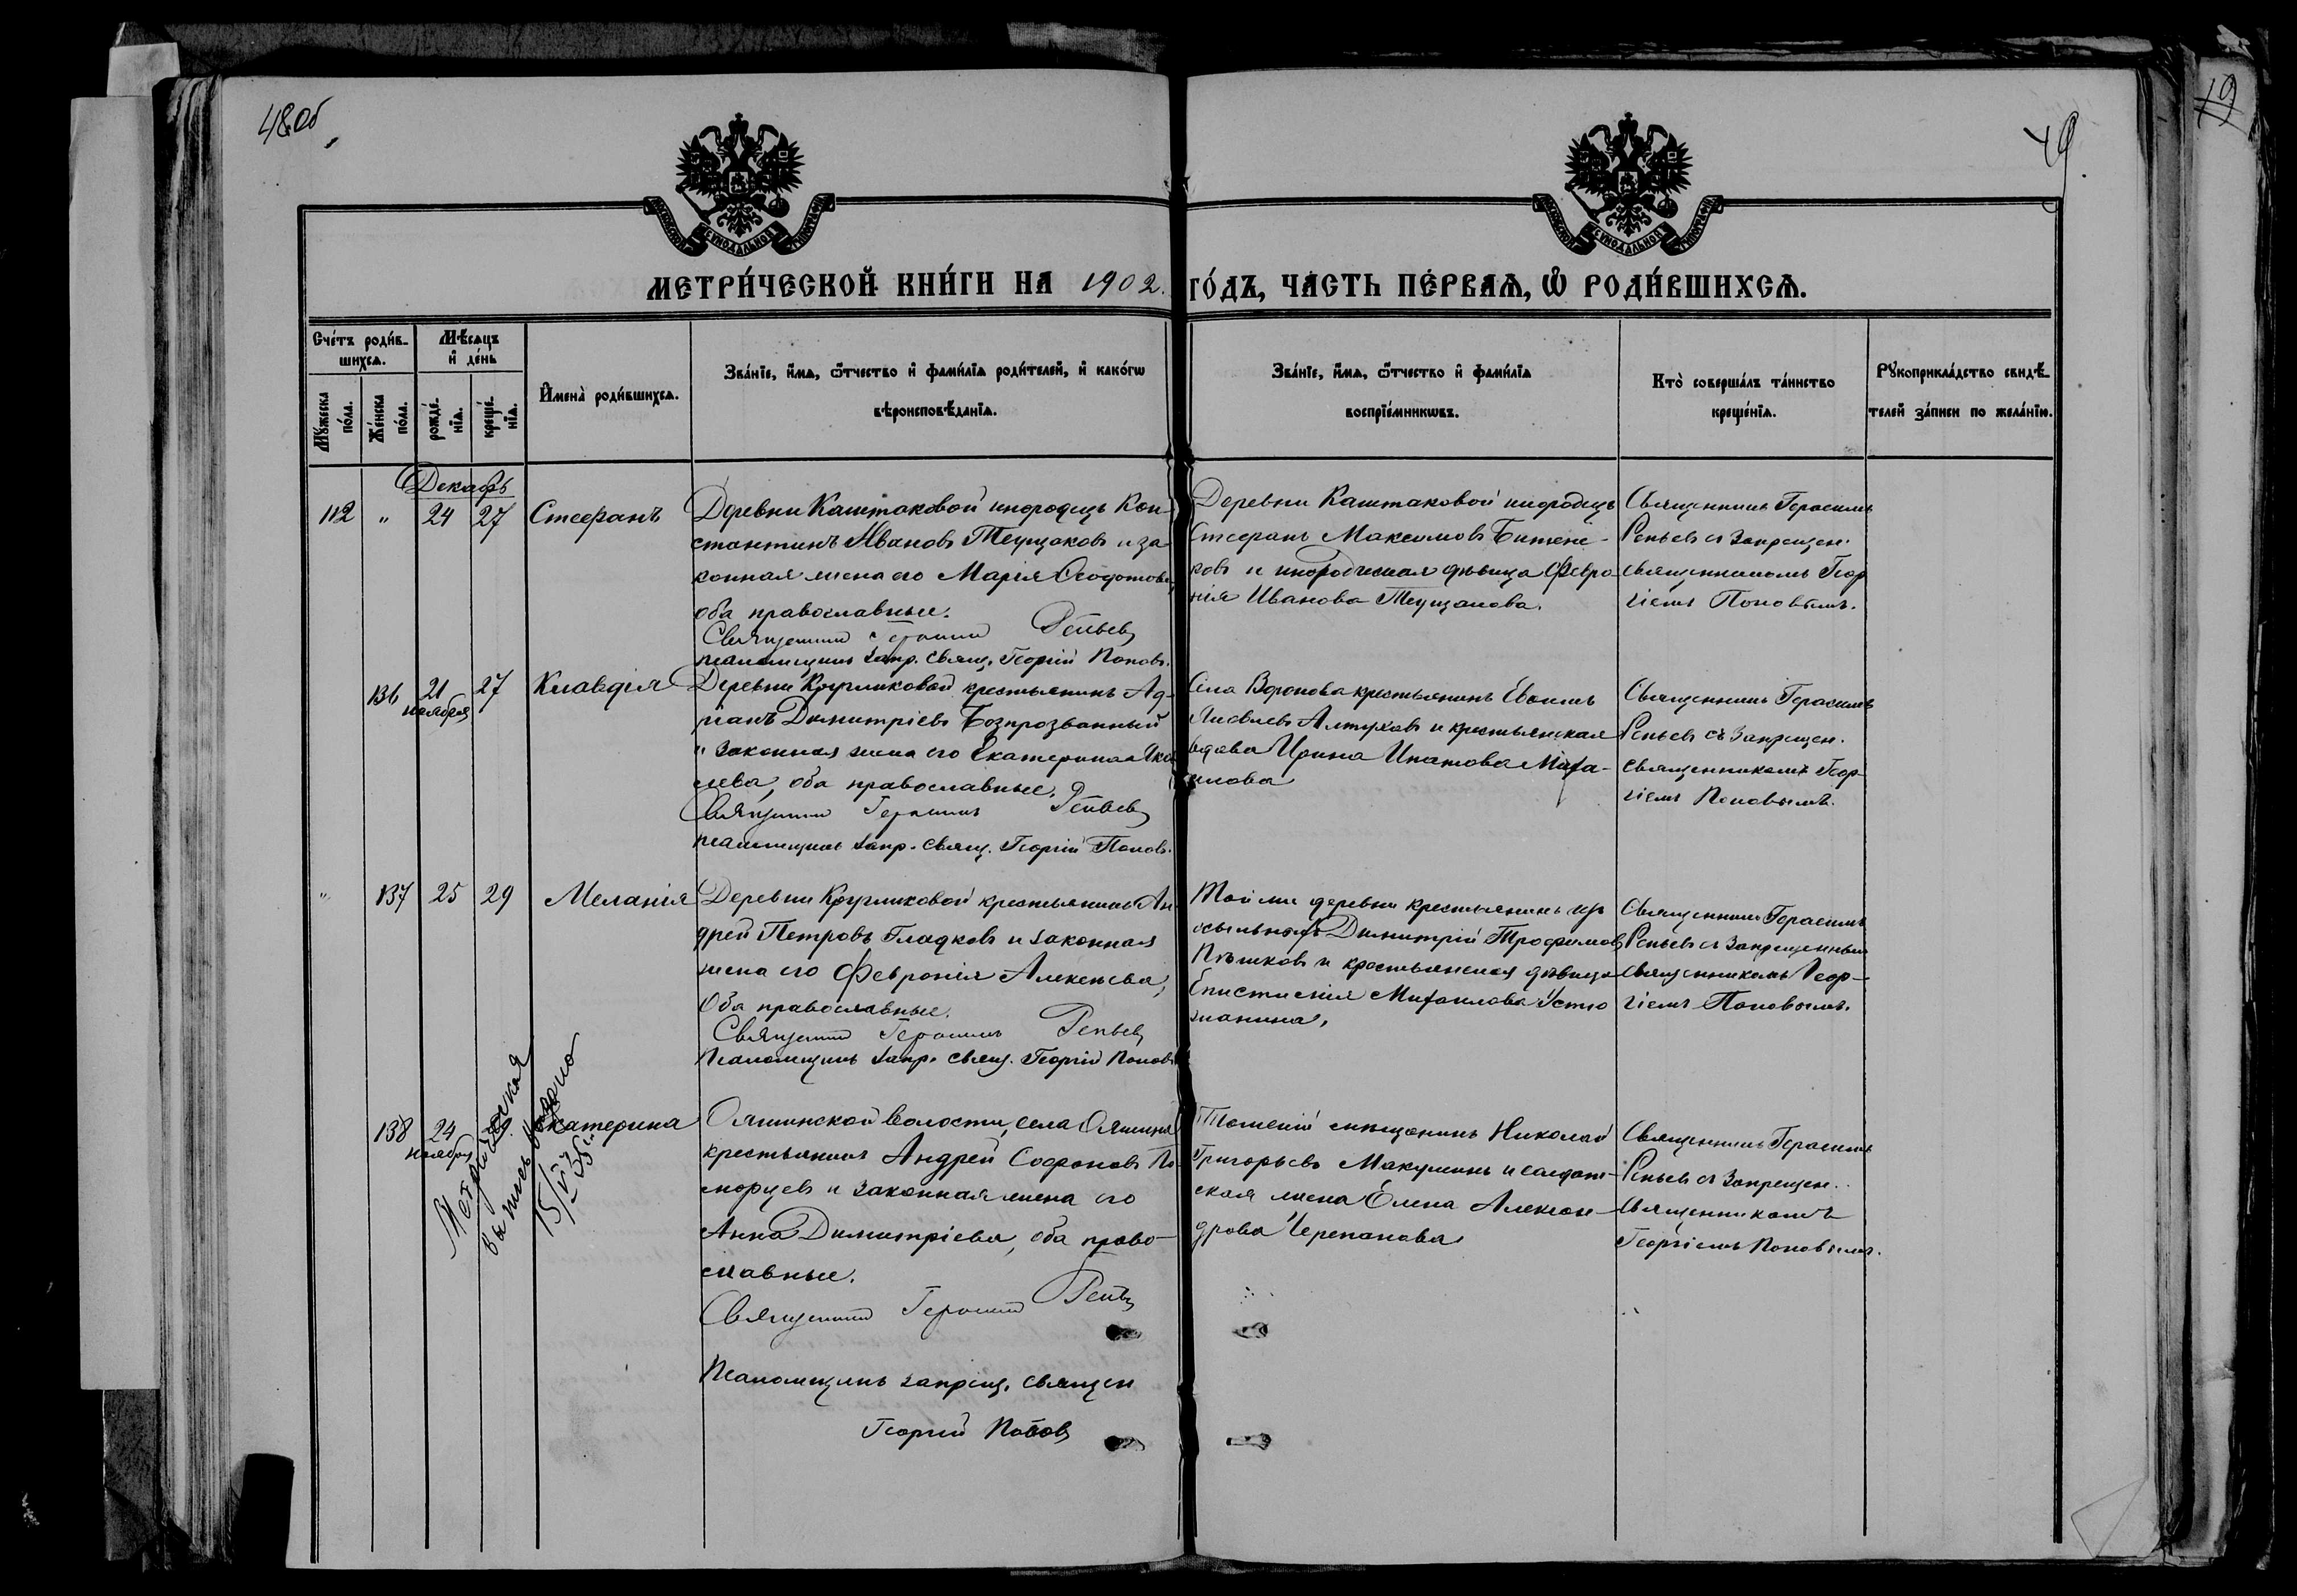 48об
49
19
МОСКОВСКОЙ СѴНОДАЛЬНОЙ ТИПОГРАФІИ
МОСКОВСКОЙ СѴНОДАЛЬНОЙ ТИПОГРАФІИ
МЕТРИ́ЧЕСКОЙ КНИ́ГИ НА 1902. ГО́ДЪ, ЧА́СТЬ ПЕ́РВАѦ, Ѽ РОДИ́ВШИХСѦ.
Сче́тъ роди́в-
шихсѧ.
Мѣ́сѧцъ
и҆ де́нь
Мꙋ́жеска
по́ла.
Же́нска
по́ла.
рожде́-
нїѧ.
креще́-
нїѧ.
И҆мена̀ роди́вшихсѧ.
Зва́нїе, и҆́мѧ, ѻ҆́тчество и҆ фами́лїѧ роди́телей, и҆ како́гѡ
вѣроисповѣ́данїѧ.
Зва́нїе, и҆́мѧ, ѻ҆́тчество и҆ фами́лїѧ
воспрїе́мникѡвъ.
Кто̀ соверша́лъ та́инство
креще́нїѧ.
Рꙋкоприкла́дство свидѣ́-
телей за́писи по жела́нїю.
Декабрь
112 " 24 27 Стефанъ
Деревни Каштаковой инородецъ Кон-
стантинъ Ивановъ Теущаковъ и за-
конная жена его Марія Ѳеодотова,
оба православные.
Священникъ Герасимъ Репьевъ
псаломщикъ запр. свящ. Георгій Поповъ.
Деревни Каштаковой инородецъ
Стефанъ Максимовъ
ковъ и инородческая дѣвица Февро-
нія Иванова Теущакова.
Священникъ Герасимъ
Репьевъ съ запрещен.
священникомъ Геор
гіемъ Поповымъ.
136 21 27 Клавдія
ноября
Деревни Кругликовой крестьянинъ Ад-
ріанъ Димитріевъ Безпрозванный
и законная жена его Екатерина Яков
лева, оба православные.
Священникъ Герасимъ Репьевъ
псаломщикъ запр. свящ. Георгій Поповъ.
Села Воронова крестьянинъ Евѳимъ
Яковлевъ Алтуховъ и крестьянская
вдова Ирина Ипатова Миха-
илова
Священникъ Герасимъ
Репьевъ съ запрещен.
священникомъ Геор-
гіемъ Поповымъ.
" 137 25 29 Меланія
Деревни Кругликовой крестьянинъ Ан
дрей Петровъ Гладковъ и законная
жена его Февронія Алексѣева,
оба православные.
Священникъ Герасимъ Репьевъ
Псаломщикъ запр. свящ. Георгій Поповъ
Той же деревни крестьянинъ изъ
ссыльныхъ Димитрій Трофимовъ
Пѣшковъ и крестьянская дѣвица
Епистимія Михаилова Устю
жанина.
Священникъ Герасимъ
Репьевъ съ запрещеннымъ
священникомъ Геор-
гіемъ Поповымъ.
138 24 29 Екатерина
ноября
Метрическая
выпись выдано
15/IV 35 г.
Ояшинской волости, села Ояшина
крестьянинъ Андрей Софроновъ По
морцевъ и законная жена его
Анна Димитріева, оба право-
славные.
Священникъ Герасимъ Репьевъ
Псаломщикъ запрещ. священ
Георгій Поповъ
Томскій мещанинъ Николай
Григорьевъ Макушинъ и солдат-
ская жена Елена Алексан-
дрова Черепанова
Священникъ Герасимъ
Репьевъ съ запрещен.
священникомъ
Георгіемъ Поповымъ.